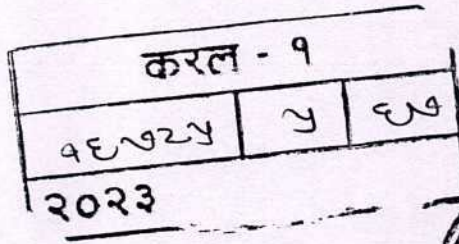 करल - १
१६७२५ ५ ६७
२०२३